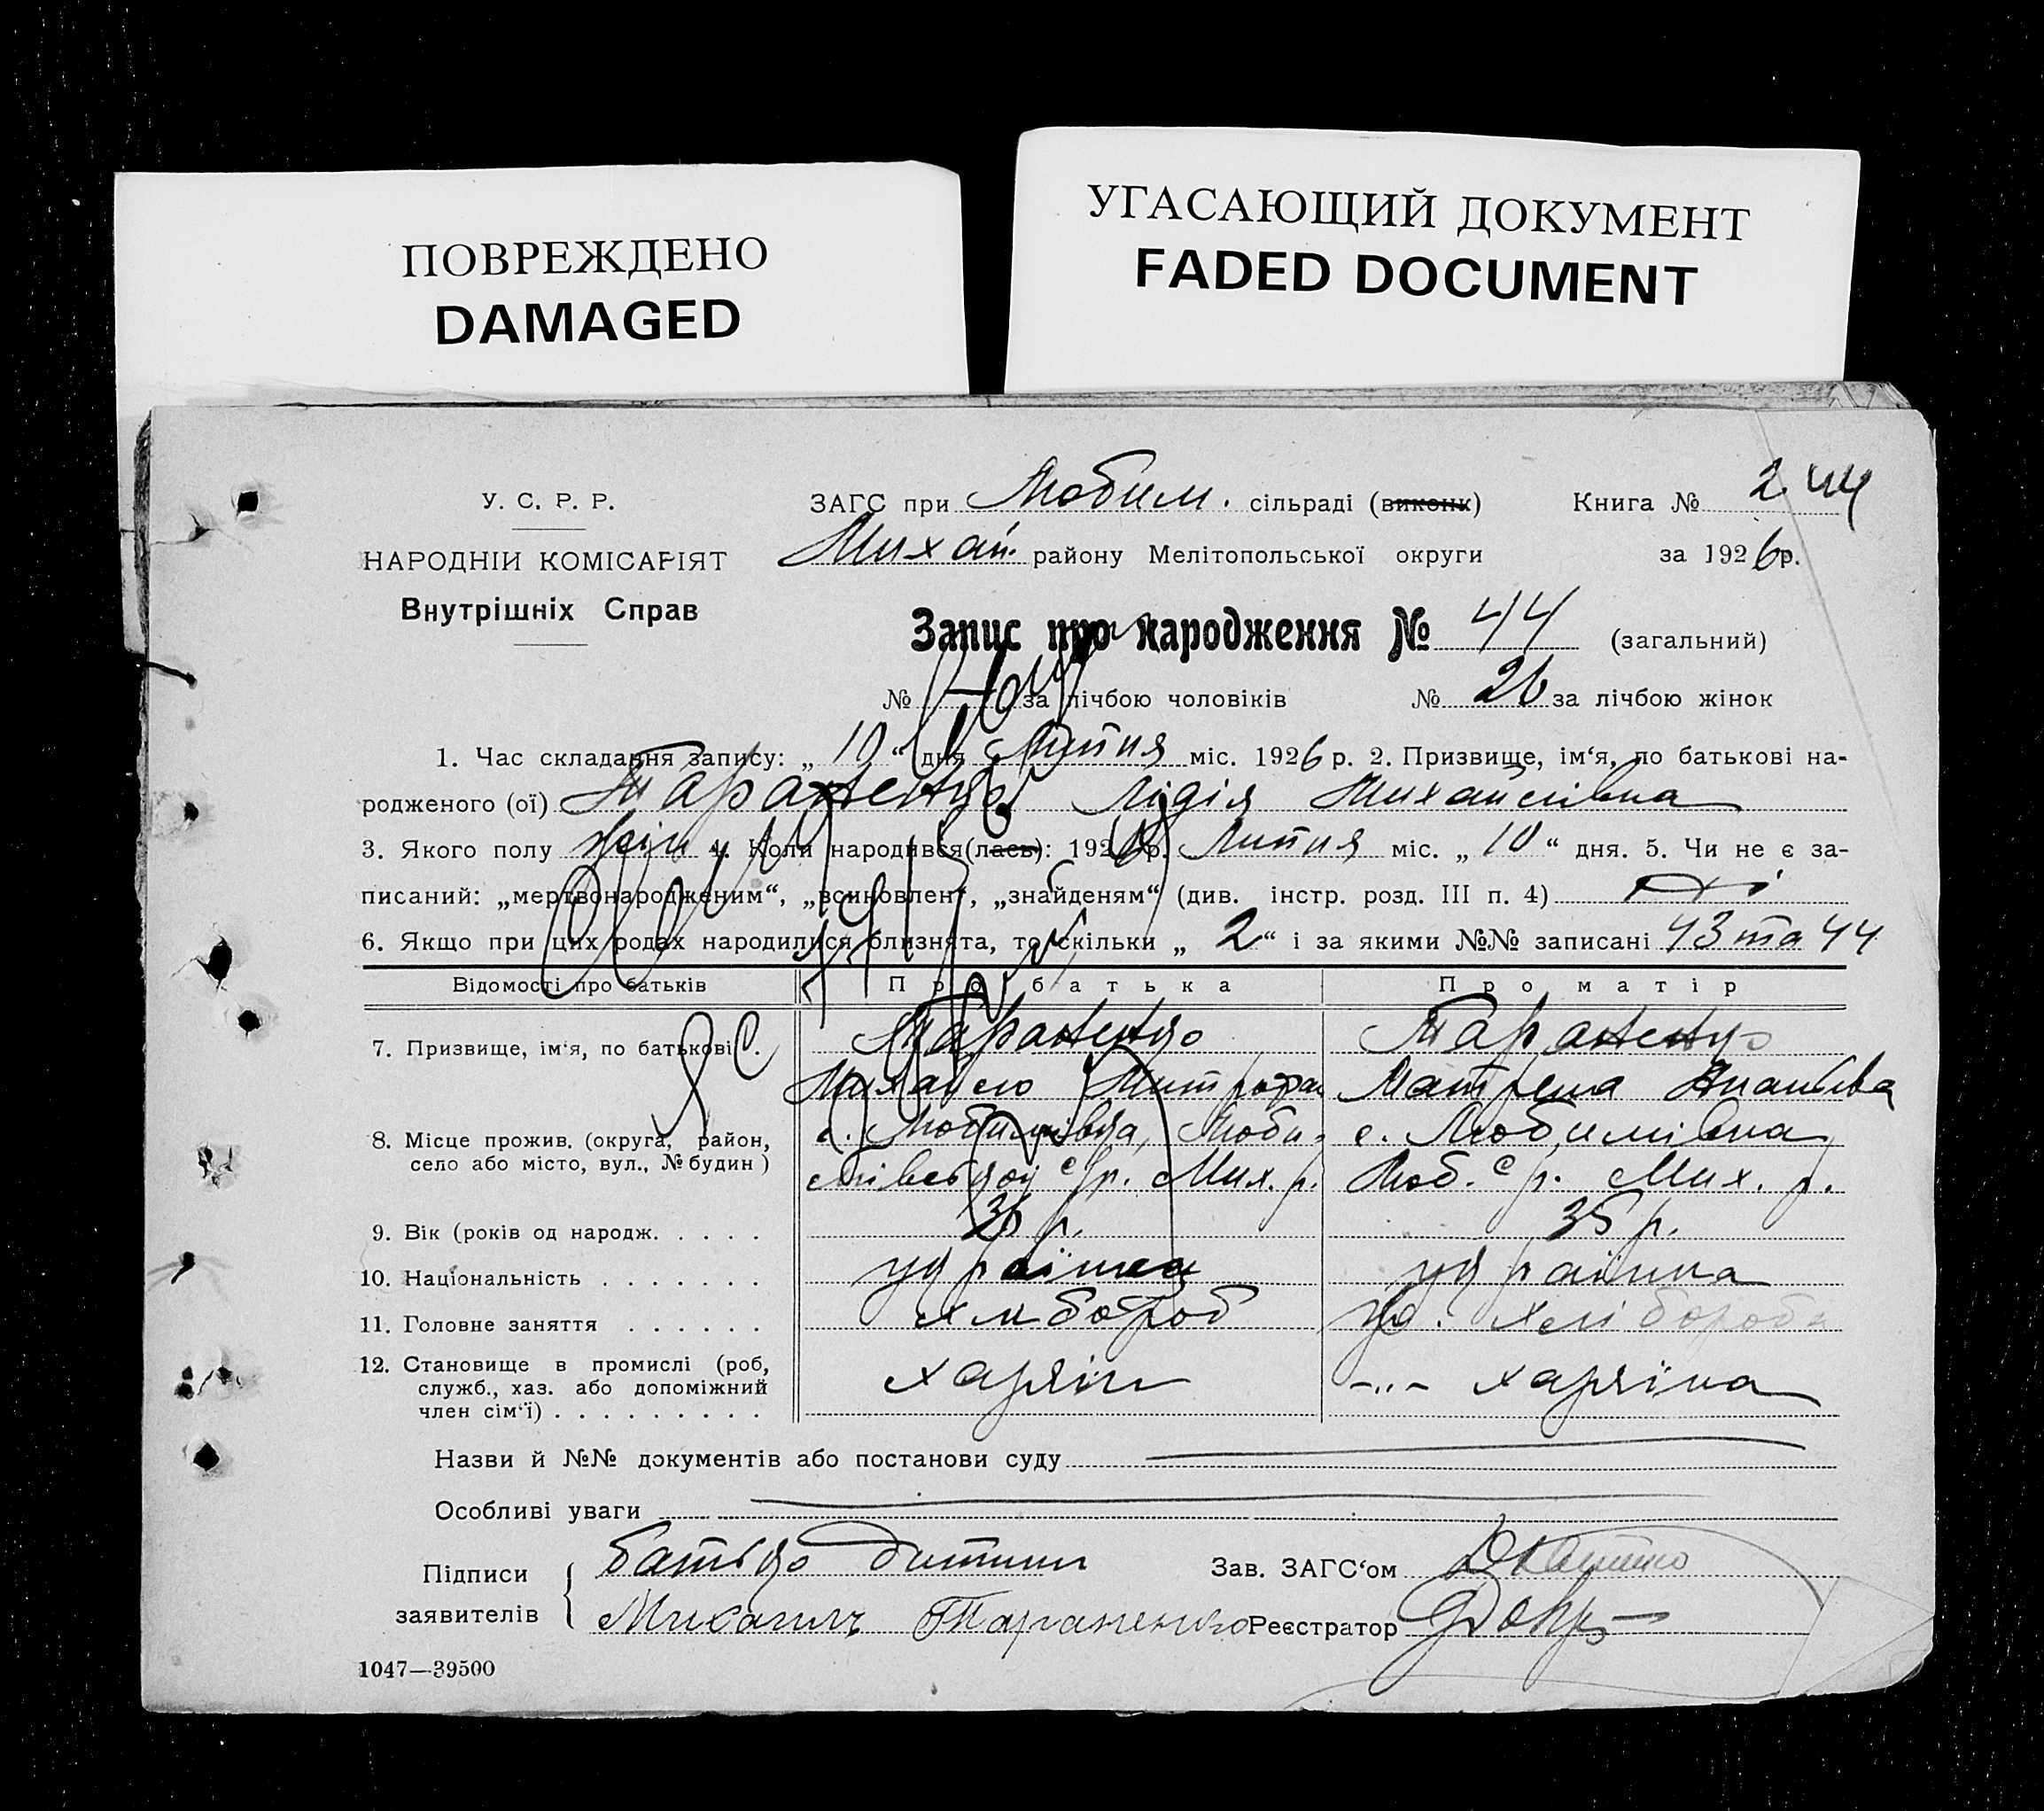 ПОВРЕЖДЕНО
DAMAGED
УГАСАЮЩИЙ ДОКУМЕНТ
FADED DOCUMENT
У. С. Р. Р.
НАРОДНІЙ КОМІСАРІЯТ
Внутрішніх Справ
ЗАГС при Любим. сільраді (виконк) Книга № 2
Михай. району Мелітопольської округи за 1926 р.
Запис про народження № 44 (загальний)
№ за лічбою чоловіків № 26 за лічбою жінок
1. Час складання запису: „ 10 “ дня Липня міс. 1926 р. 2. Призвище, ім‘я, по батькові на-
родженого (ої) Тараненко Лідія Михайлівна
3. Якого полу жін 4. Коли народився(лась): 1926 р. Липня міс. „ 10 “ дня. 5. Чи не є за-
писаний: „мертвонародженим“, „всиновлен“, „знайденям“ (див. інстр. розд. III п. 4) ні
6. Якщо при цих родах народилися близнята, то скільки „ 2 “ і за якими №№ записані 43 та 44
Відомості про батьків Про батька Про матір
7. Призвище, ім‘я, по батькові . Тараненко Тараненко
Михайло Митрофан Матрена Ананьева
8. Місце прожив. (округа, район, с. Любимівка, Люби- с. Любимівка
село або місто, вул., № будин ) мівської с/р. Мих. р. Люб. с/р. Мих. р.
9. Вік (років од народж. . . . . 36 р. 35 р.
10. Національність . . . . . . . українец українка
11. Головне заняття . . . . . . хлібороб хлібороба
12. Становище в промислі (роб, хазяїн -„- хазяїна
служб., хаз. або допоміжний
член сім‘ї) . . . . . . . . .
Назви й №№ документів або постанови суду
Особливі уваги
Підписи батько дитини Зав. ЗАГС‘ом
заявителів Михаилъ Тараненко Реєстратор
1047—39500